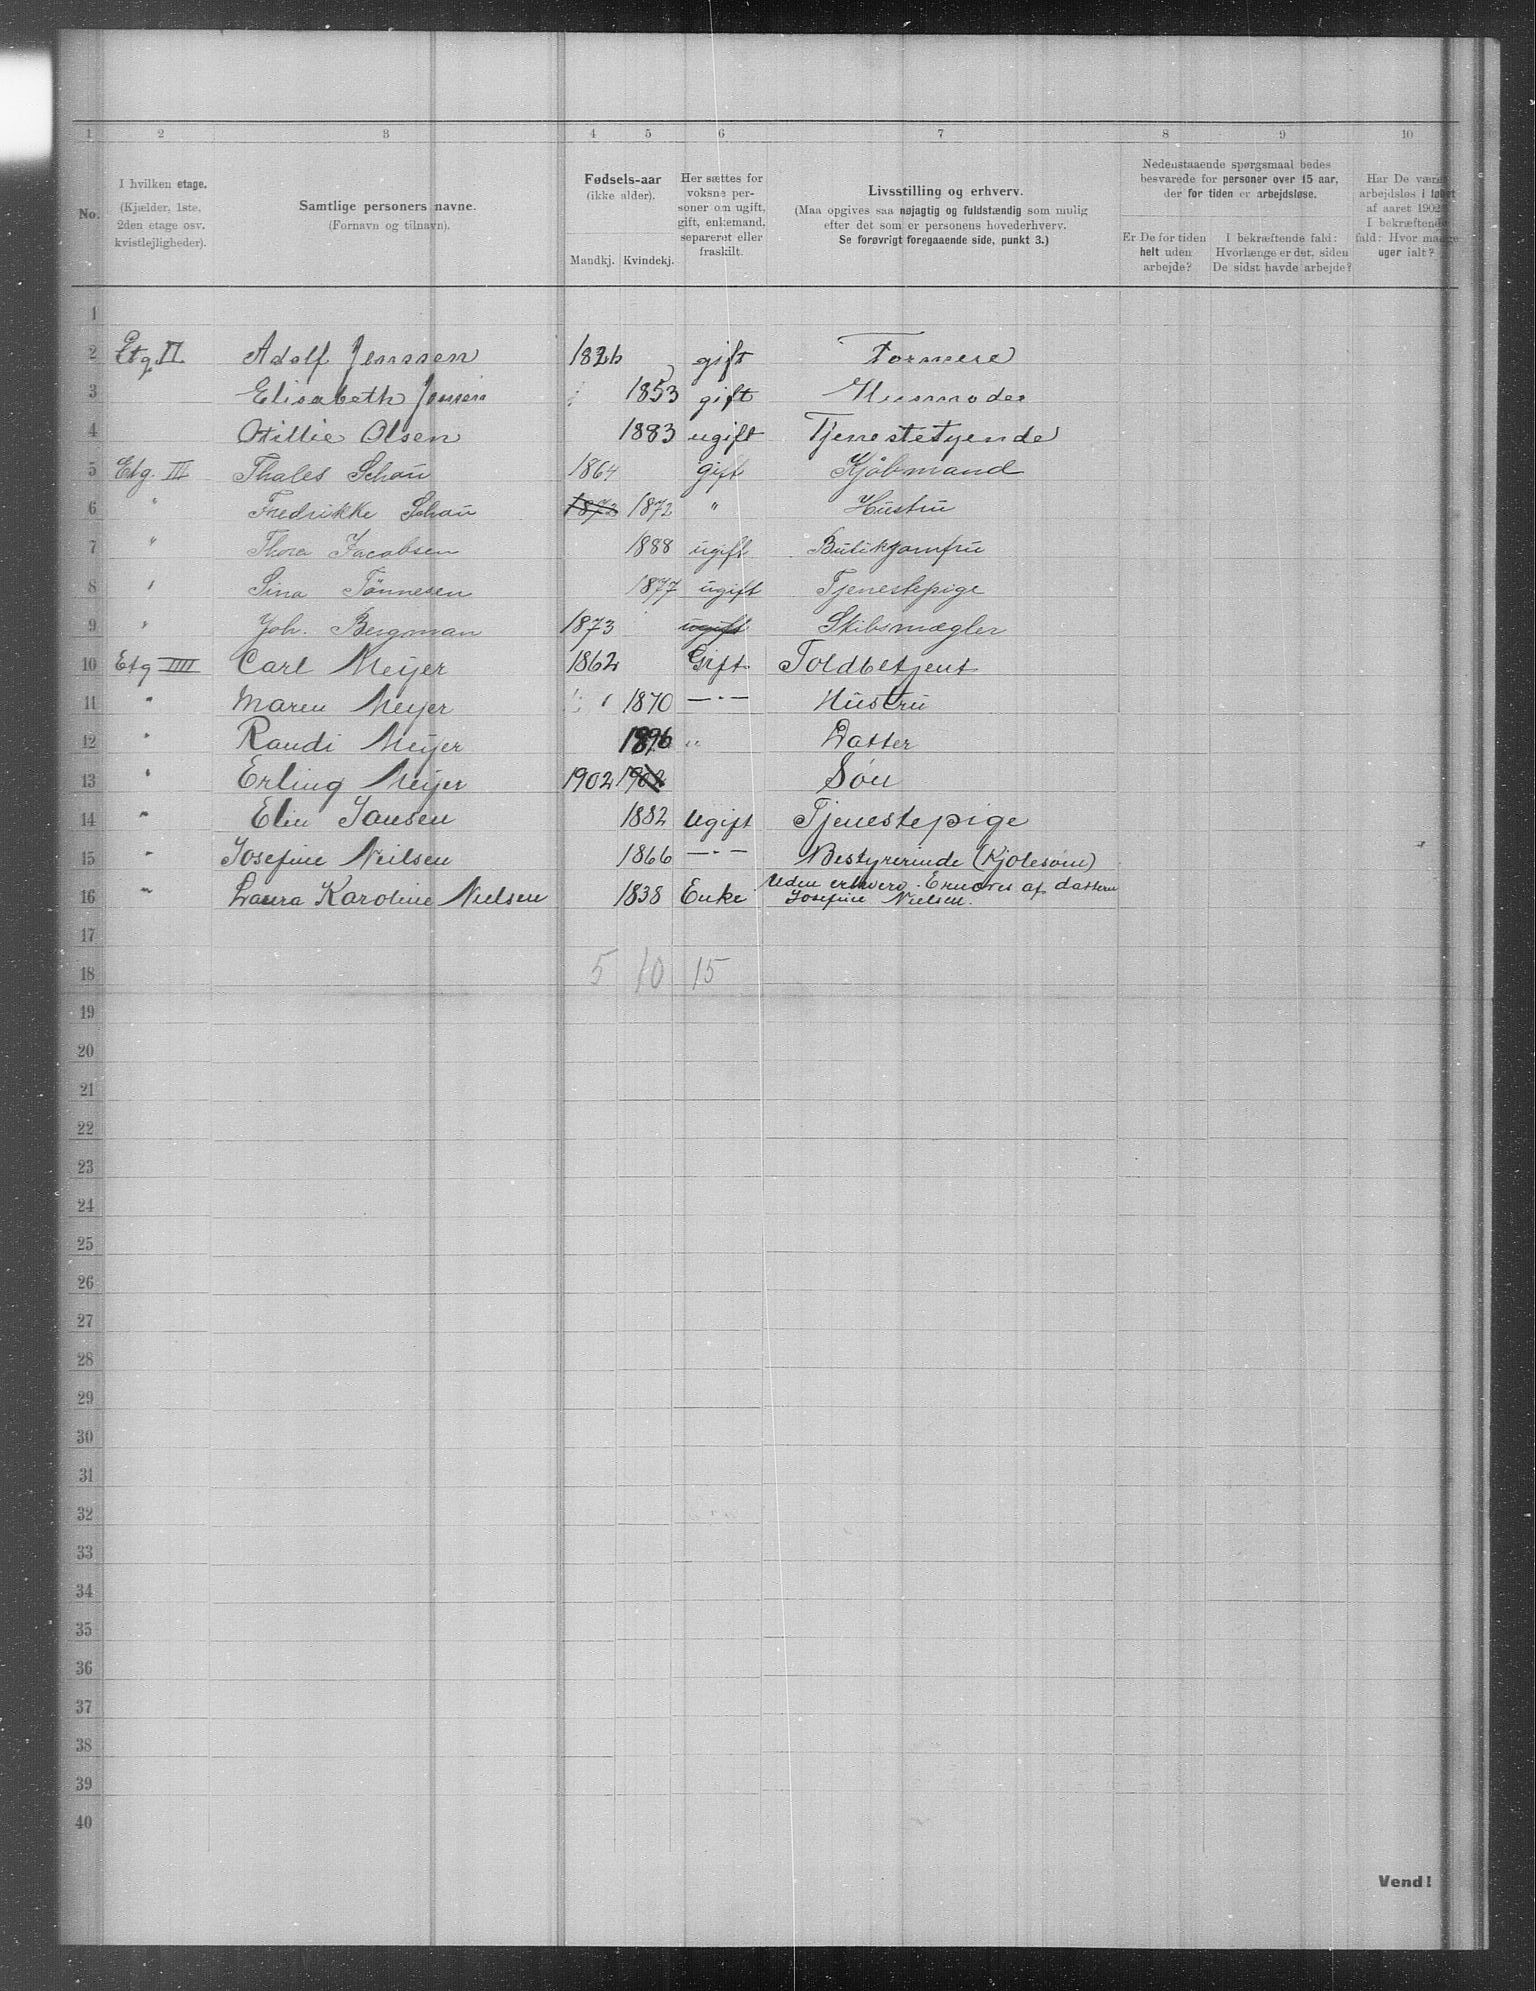 1 2 3 4 5 6 7 8 9 10
No.
I hvilken etage.
(Kjælder, 1ste,
2den etage osv.
kvistlejligheder).
Samtlige personers navne.
(Fornavn og tilnavn).
Fødsels-aar
(ikke alder).
Mandkj. Kvindekj.
Her sættes for
voksne per-
soner om ugift,
gift, enkemand,
separeret eller
fraskilt.
Livsstilling og erhverv.
(Maa opgives saa nøjagtig og fuldstændig som mulig
efter det som er personens hovederhverv.
Se forøvrigt foregaaende side, punkt 3.)
Nedenstaaende spørgsmaal bedes
besvarede for personer over 15 aar,
der for tiden er arbejdsløse.
Er De for tiden
helt uden
arbejde?
I bekræftende fald:
Hvorlænge er det, siden
De sidst havde arbejde?
Har De været
arbejdsløs i løbet
af aaret 1902
I bekræftende
fald: Hvor mange
uger ialt?
1
2 Etg II Adolf Jenssen gift
3 Elisabeth Jenssen 1853 gift Husmoder
4 Otillie Olsen 1883 ugift Tjenestetyende
5 Etg. III Thales Schau 1864 gift Kjøbmand
6 " Fredrikke Schau 1872 1872 " Hustru
7 " Thora Jacobsen 1888 ugift Butikjomfru
8 " Sina Tønnesen 1877 ugift Tjenestepige
9 " Joh. Bergman 1873 ugift Skibsmægler
10 Etg IIII Carl Meijer 1862 Gift Toldbetjent
11 " Maren Meijer 1870 —"— Hustru
12 " Randi Meijer 1896 " Datter
13 " Erling Meijer 1902 1902 Søn
14 " Elin Jansen 1882 Ugift Tjenestepige
15 " Josefine Neilsen 1866 —"— Bestyrerinde (Kjolesøm)
16 " Laura Karoline Nielsen 1838 Enke Uden erhverv. Ernæres af datteren
Josefine Nielsen.
17
18 5 10 15
19
20
21
22
23
24
25
26
27
28
29
30
31
32
33
34
35
36
37
38
39
40
Vend!